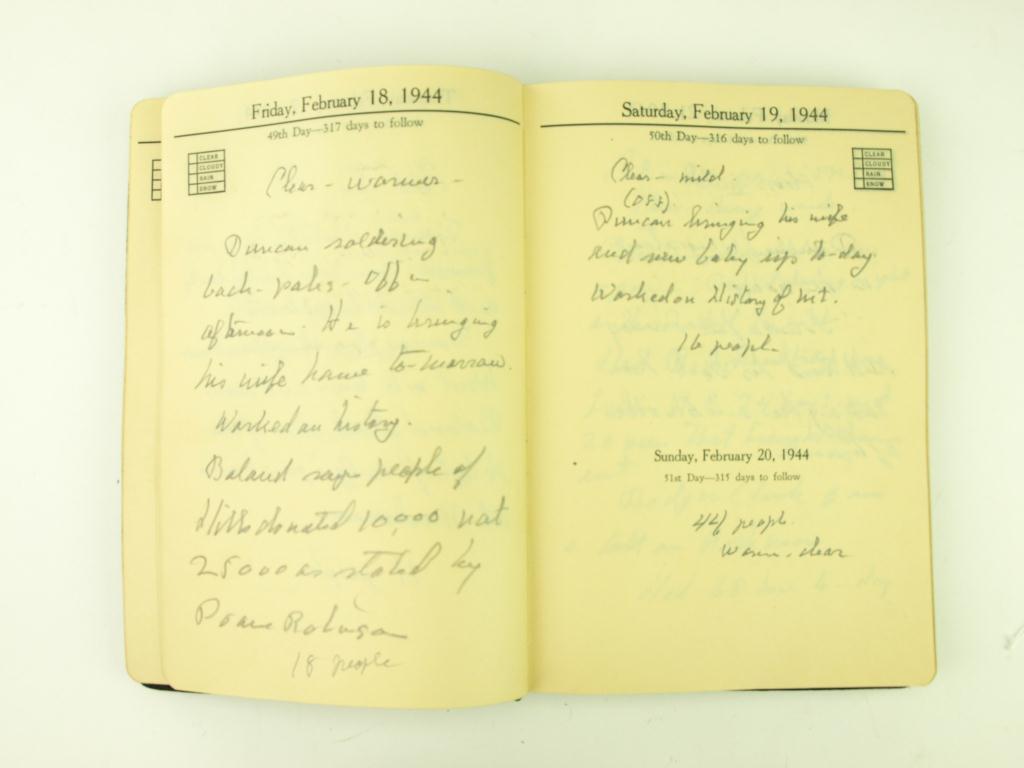 Friday, February 18, 1944
49th Day—317 days to follow
CLEAR
CLOUDY
RAIN
SNOW
Clear - warmer -
Duncan soldering
back-paks - Off in
afternoon. He is bringing
his wife home to-morrow.
Worked on history.
Boland says people of
Hills donated 10,000 not
25000 as stated by
Doane Robinson
18 people
Saturday, February 19, 1944
50th Day—316 days to follow
CLEAR
CLOUDY
RAIN
SNOW
Clear - mild.
(Off)
Duncan bringing his wife
and new baby up to-day.
Worked on History of Mt.
16 people
Sunday, February 20, 1944
51st Day—315 days to follow
44 people.
Warm - clear